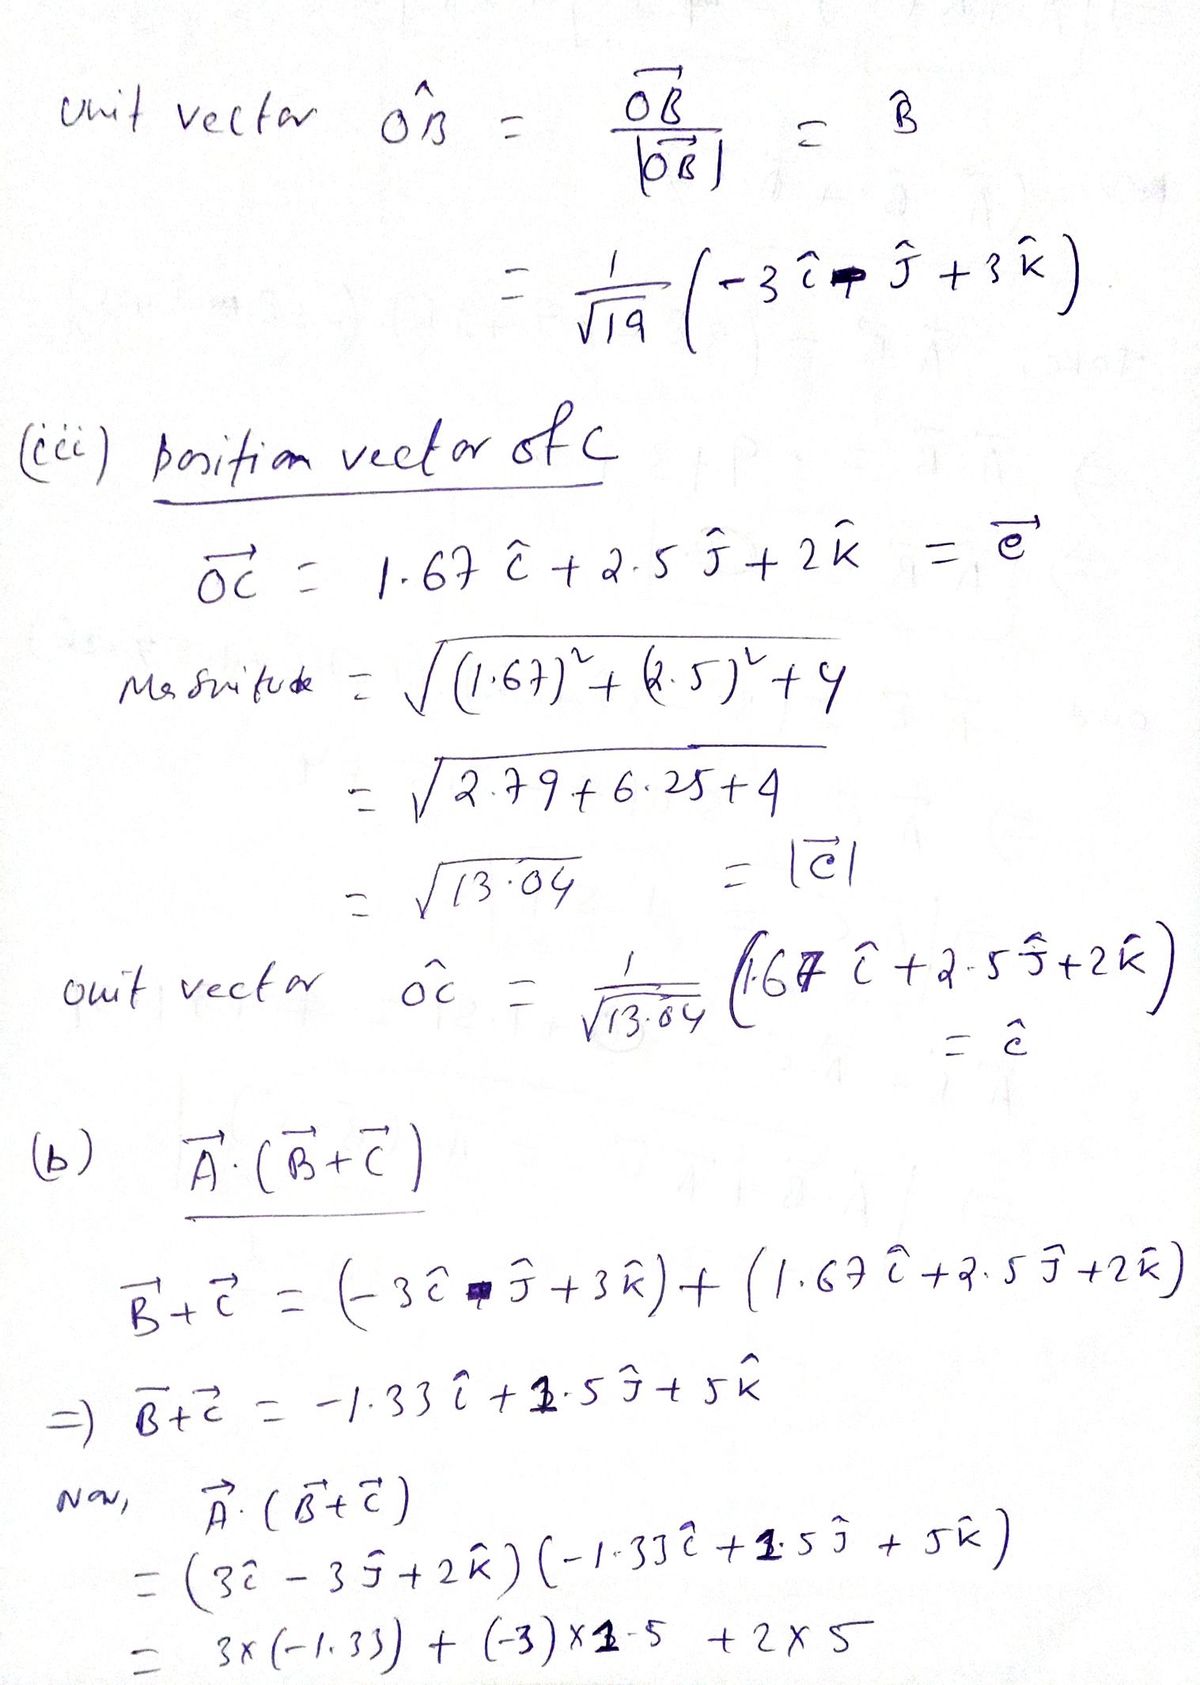 Unit vector OB̂ = OB⃗ / |OB⃗| = B̂
= 1/√19 (-3î - ĵ + 3k̂)
(iii) position vector of C
OC⃗ = 1.67 î + 2.5 ĵ + 2k̂ = C⃗
Magnitude = √((1.67)² + (2.5)² + 4)
= √(2.79 + 6.25 + 4)
= √13.04 = |C⃗|
Unit vector OĈ = 1/√13.04 (1.67 î + 2.5 ĵ + 2k̂)
= ĉ
(b) A⃗·(B⃗+C⃗)
B⃗+C⃗ = (-3î - ĵ + 3k̂) + (1.67î + 2.5ĵ + 2k̂)
=> B⃗+C⃗ = -1.33 î + 1.5 ĵ + 5k̂
Now, A⃗·(B⃗+C⃗)
= (3î - 3ĵ + 2k̂)(-1.33î + 1.5ĵ + 5k̂)
= 3×(-1.33) + (-3)×1.5 + 2×5